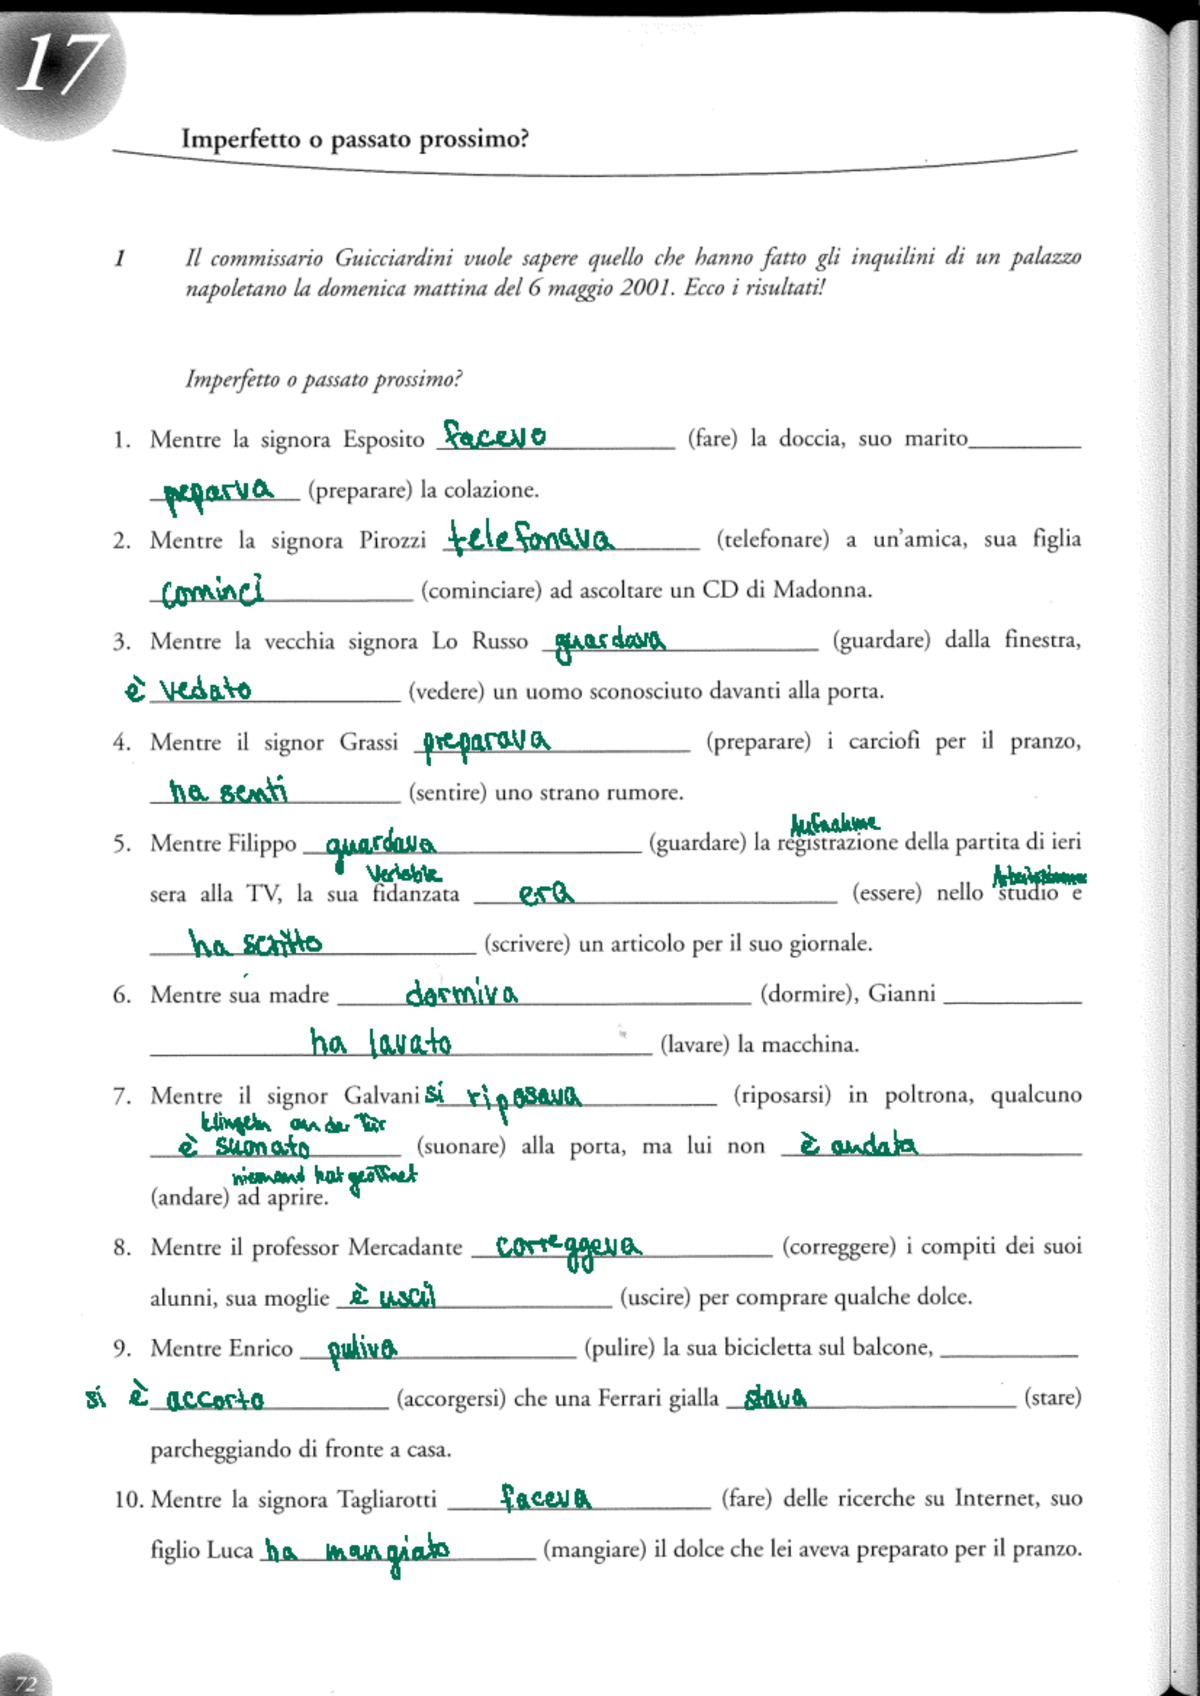 17
Imperfetto o passato prossimo?
1 Il commissario Guicciardini vuole sapere quello che hanno fatto gli inquilini di un palazzo
napoletano la domenica mattina del 6 maggio 2001. Ecco i risultati!
Imperfetto o passato prossimo?
1. Mentre la signora Esposito facevo (fare) la doccia, suo marito
peparva (preparare) la colazione.
2. Mentre la signora Pirozzi telefonava (telefonare) a un'amica, sua figlia
cominci (cominciare) ad ascoltare un CD di Madonna.
3. Mentre la vecchia signora Lo Russo guardava (guardare) dalla finestra,
è vedato (vedere) un uomo sconosciuto davanti alla porta.
4. Mentre il signor Grassi preparava (preparare) i carciofi per il pranzo,
ha senti (sentire) uno strano rumore.
Aufnahme
5. Mentre Filippo guardava (guardare) la registrazione della partita di ieri
Verlobte
sera alla TV, la sua fidanzata era (essere) nello studio e
ha scritto (scrivere) un articolo per il suo giornale.
6. Mentre sua madre dormiva (dormire), Gianni
ha lavato (lavare) la macchina.
7. Mentre il signor Galvani si riposava (riposarsi) in poltrona, qualcuno
klingeln an der Tür
è suonato (suonare) alla porta, ma lui non è andata
niemand hat geöffnet
(andare) ad aprire.
8. Mentre il professor Mercadante correggeva (correggere) i compiti dei suoi
alunni, sua moglie è (uscire) per comprare qualche dolce.
9. Mentre Enrico puliva (pulire) la sua bicicletta sul balcone,
si è accorto (accorgersi) che una Ferrari gialla stava (stare)
parcheggiando di fronte a casa.
10. Mentre la signora Tagliarotti faceva (fare) delle ricerche su Internet, suo
figlio Luca ha mangiato (mangiare) il dolce che lei aveva preparato per il pranzo.
72